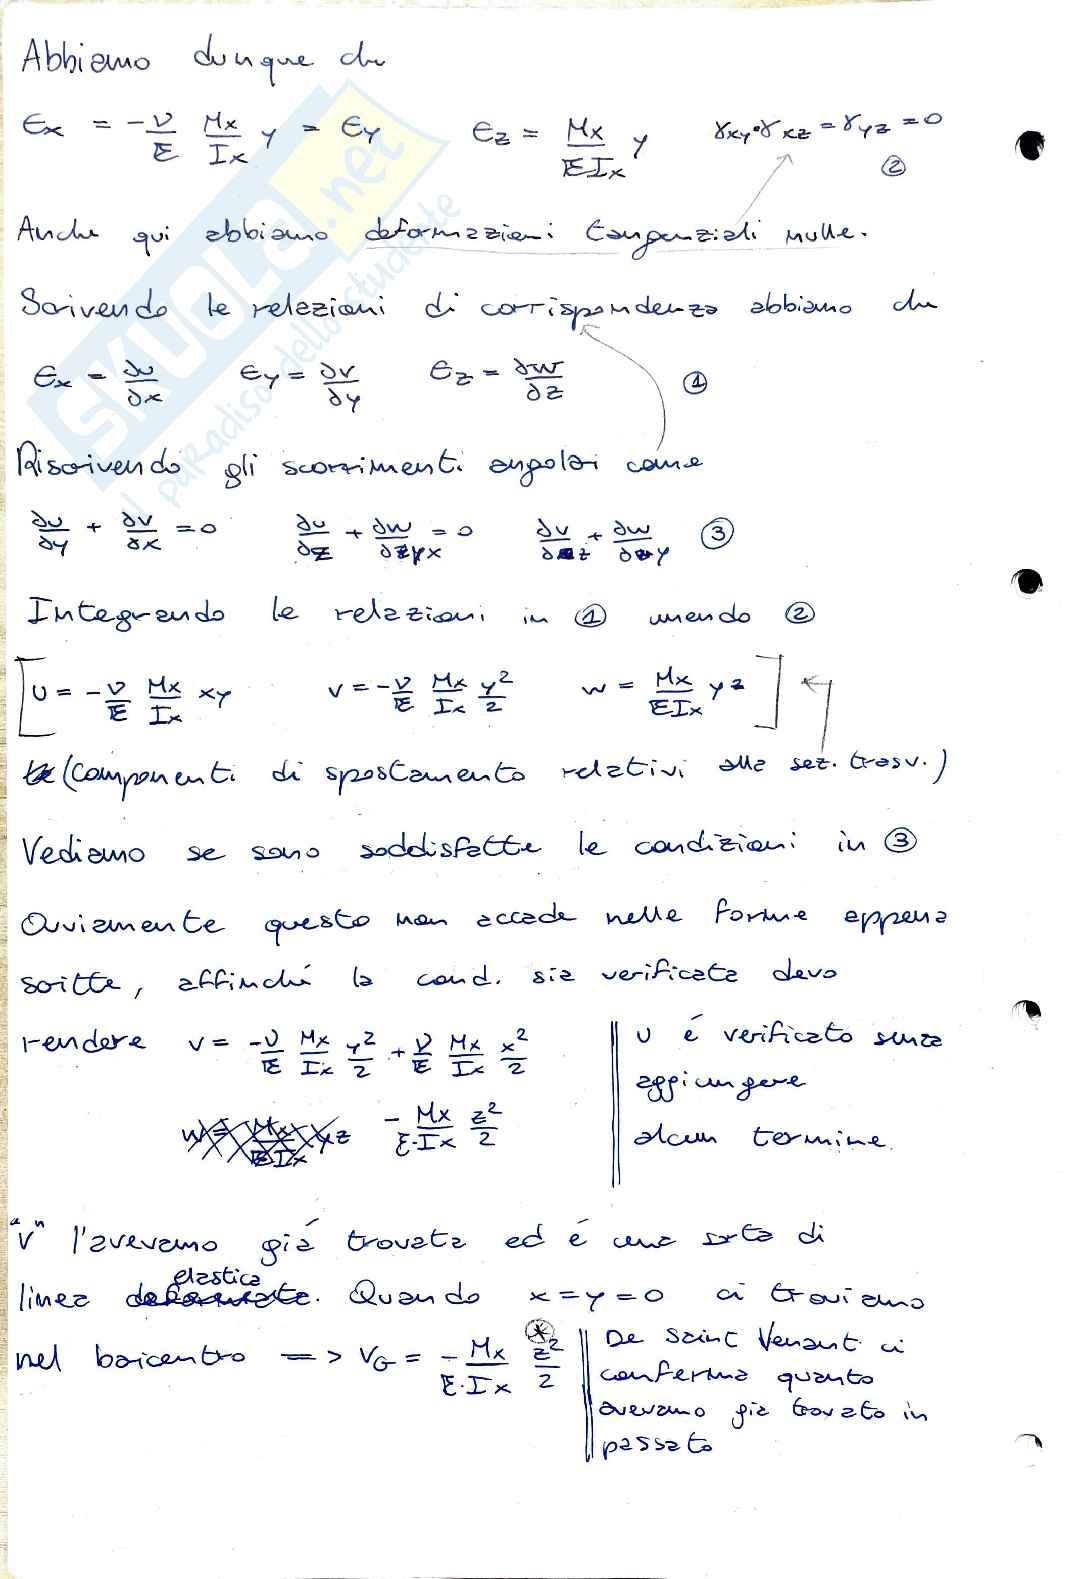 Abbiamo dunque che
εx = -ν/E Mx/Ix y = εy    εz = Mx/EIx y    γxy=γxz=γyz=0 ②
Anche qui abbiamo deformazioni tangenziali nulle.
Scrivendo le relazioni di corrispondenza abbiamo che
εx = ∂u/∂x    εy = ∂v/∂y    εz = ∂w/∂z    ①
Riscrivendo gli scorrimenti angolari come
∂u/∂y + ∂v/∂x = 0    ∂u/∂z + ∂w/∂x = 0    ∂v/∂z + ∂w/∂y    ③
Integrando le relazioni in ① usando ②
[u = -ν/E Mx/Ix xy    v = -ν/E Mx/Ix y²/2    w = Mx/EIx yz]
(componenti di spostamento relativi alla sez. trasv.)
Vediamo se sono soddisfatte le condizioni in ③
Ovviamente questo non accade nelle forme appena
scritte, affinché la cond. sia verificata devo
rendere v = -ν/E Mx/Ix y²/2 + ν/E Mx/Ix x²/2
- Mx/E·Ix z²/2
u é verificato senza
aggiungere
alcun termine.
"v" l'avevamo giá trovata ed é una sorta di
linea elastica. Quando x=y=0 ci troviamo
nel baricentro => vG = - Mx/E·Ix z²/2 (*)
De Saint Venant ci
conferma quanto
avevamo gia trovato in
passato
SKUOLA.net
il paradiso dello studente